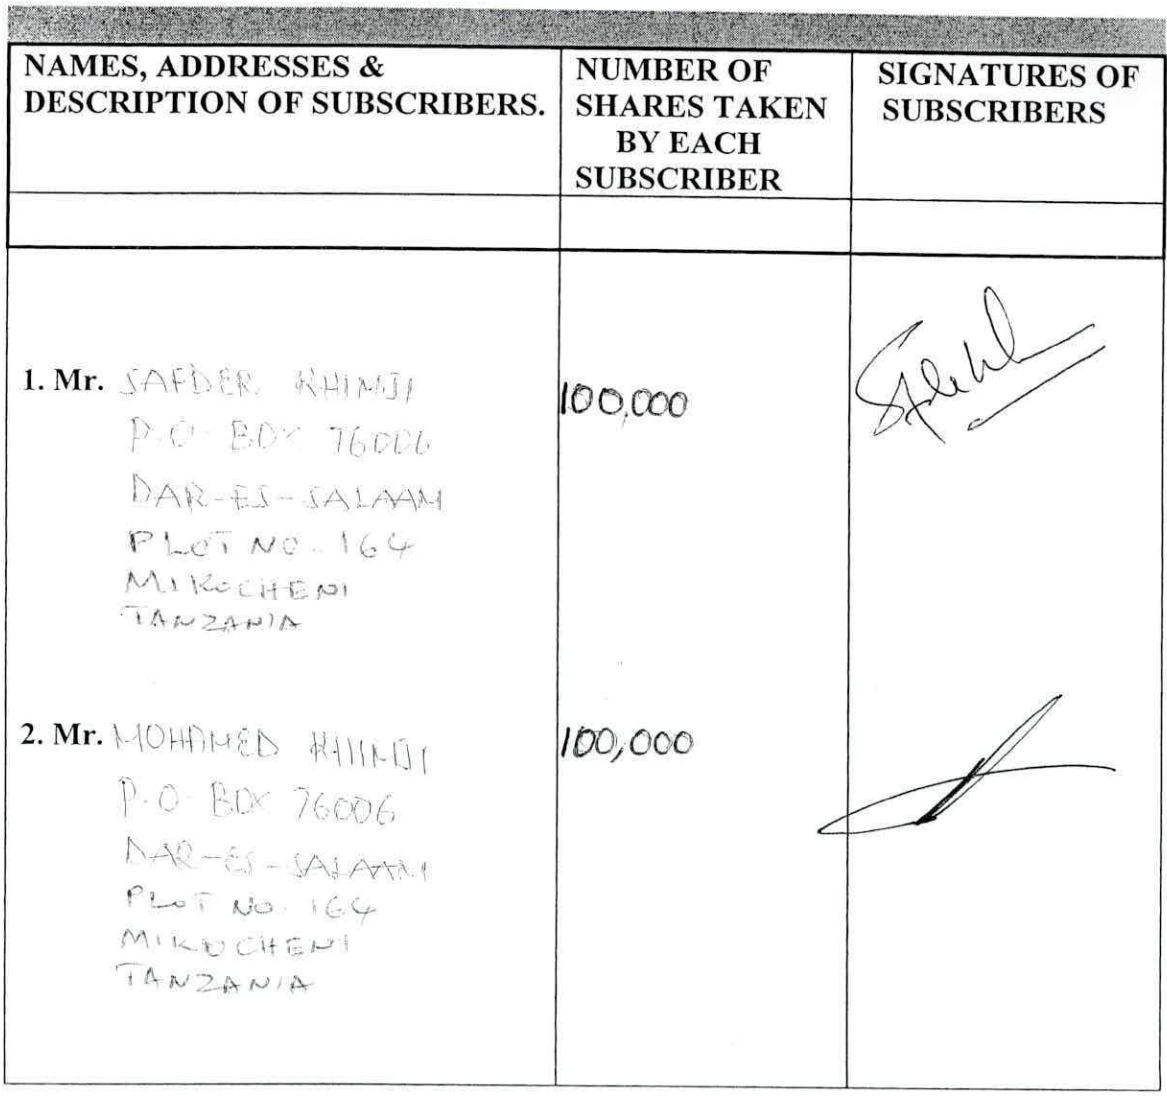 NAMES, ADDRESSES &
DESCRIPTION OF SUBSCRIBERS.
NUMBER OF
SHARES TAKEN
BY EACH
SUBSCRIBER
SIGNATURES OF
SUBSCRIBERS
1. Mr. SAFDER KHIMJI
P.O. BOX 76006
DAR-ES-SALAAM
PLOT NO. 164
MIKOCHENI
TANZANIA
100,000
2. Mr. MOHAMED KHIMJI
P.O. BOX 76006
DAR-ES-SALAAM
PLOT NO. 164
MIKOCHENI
TANZANIA
100,000